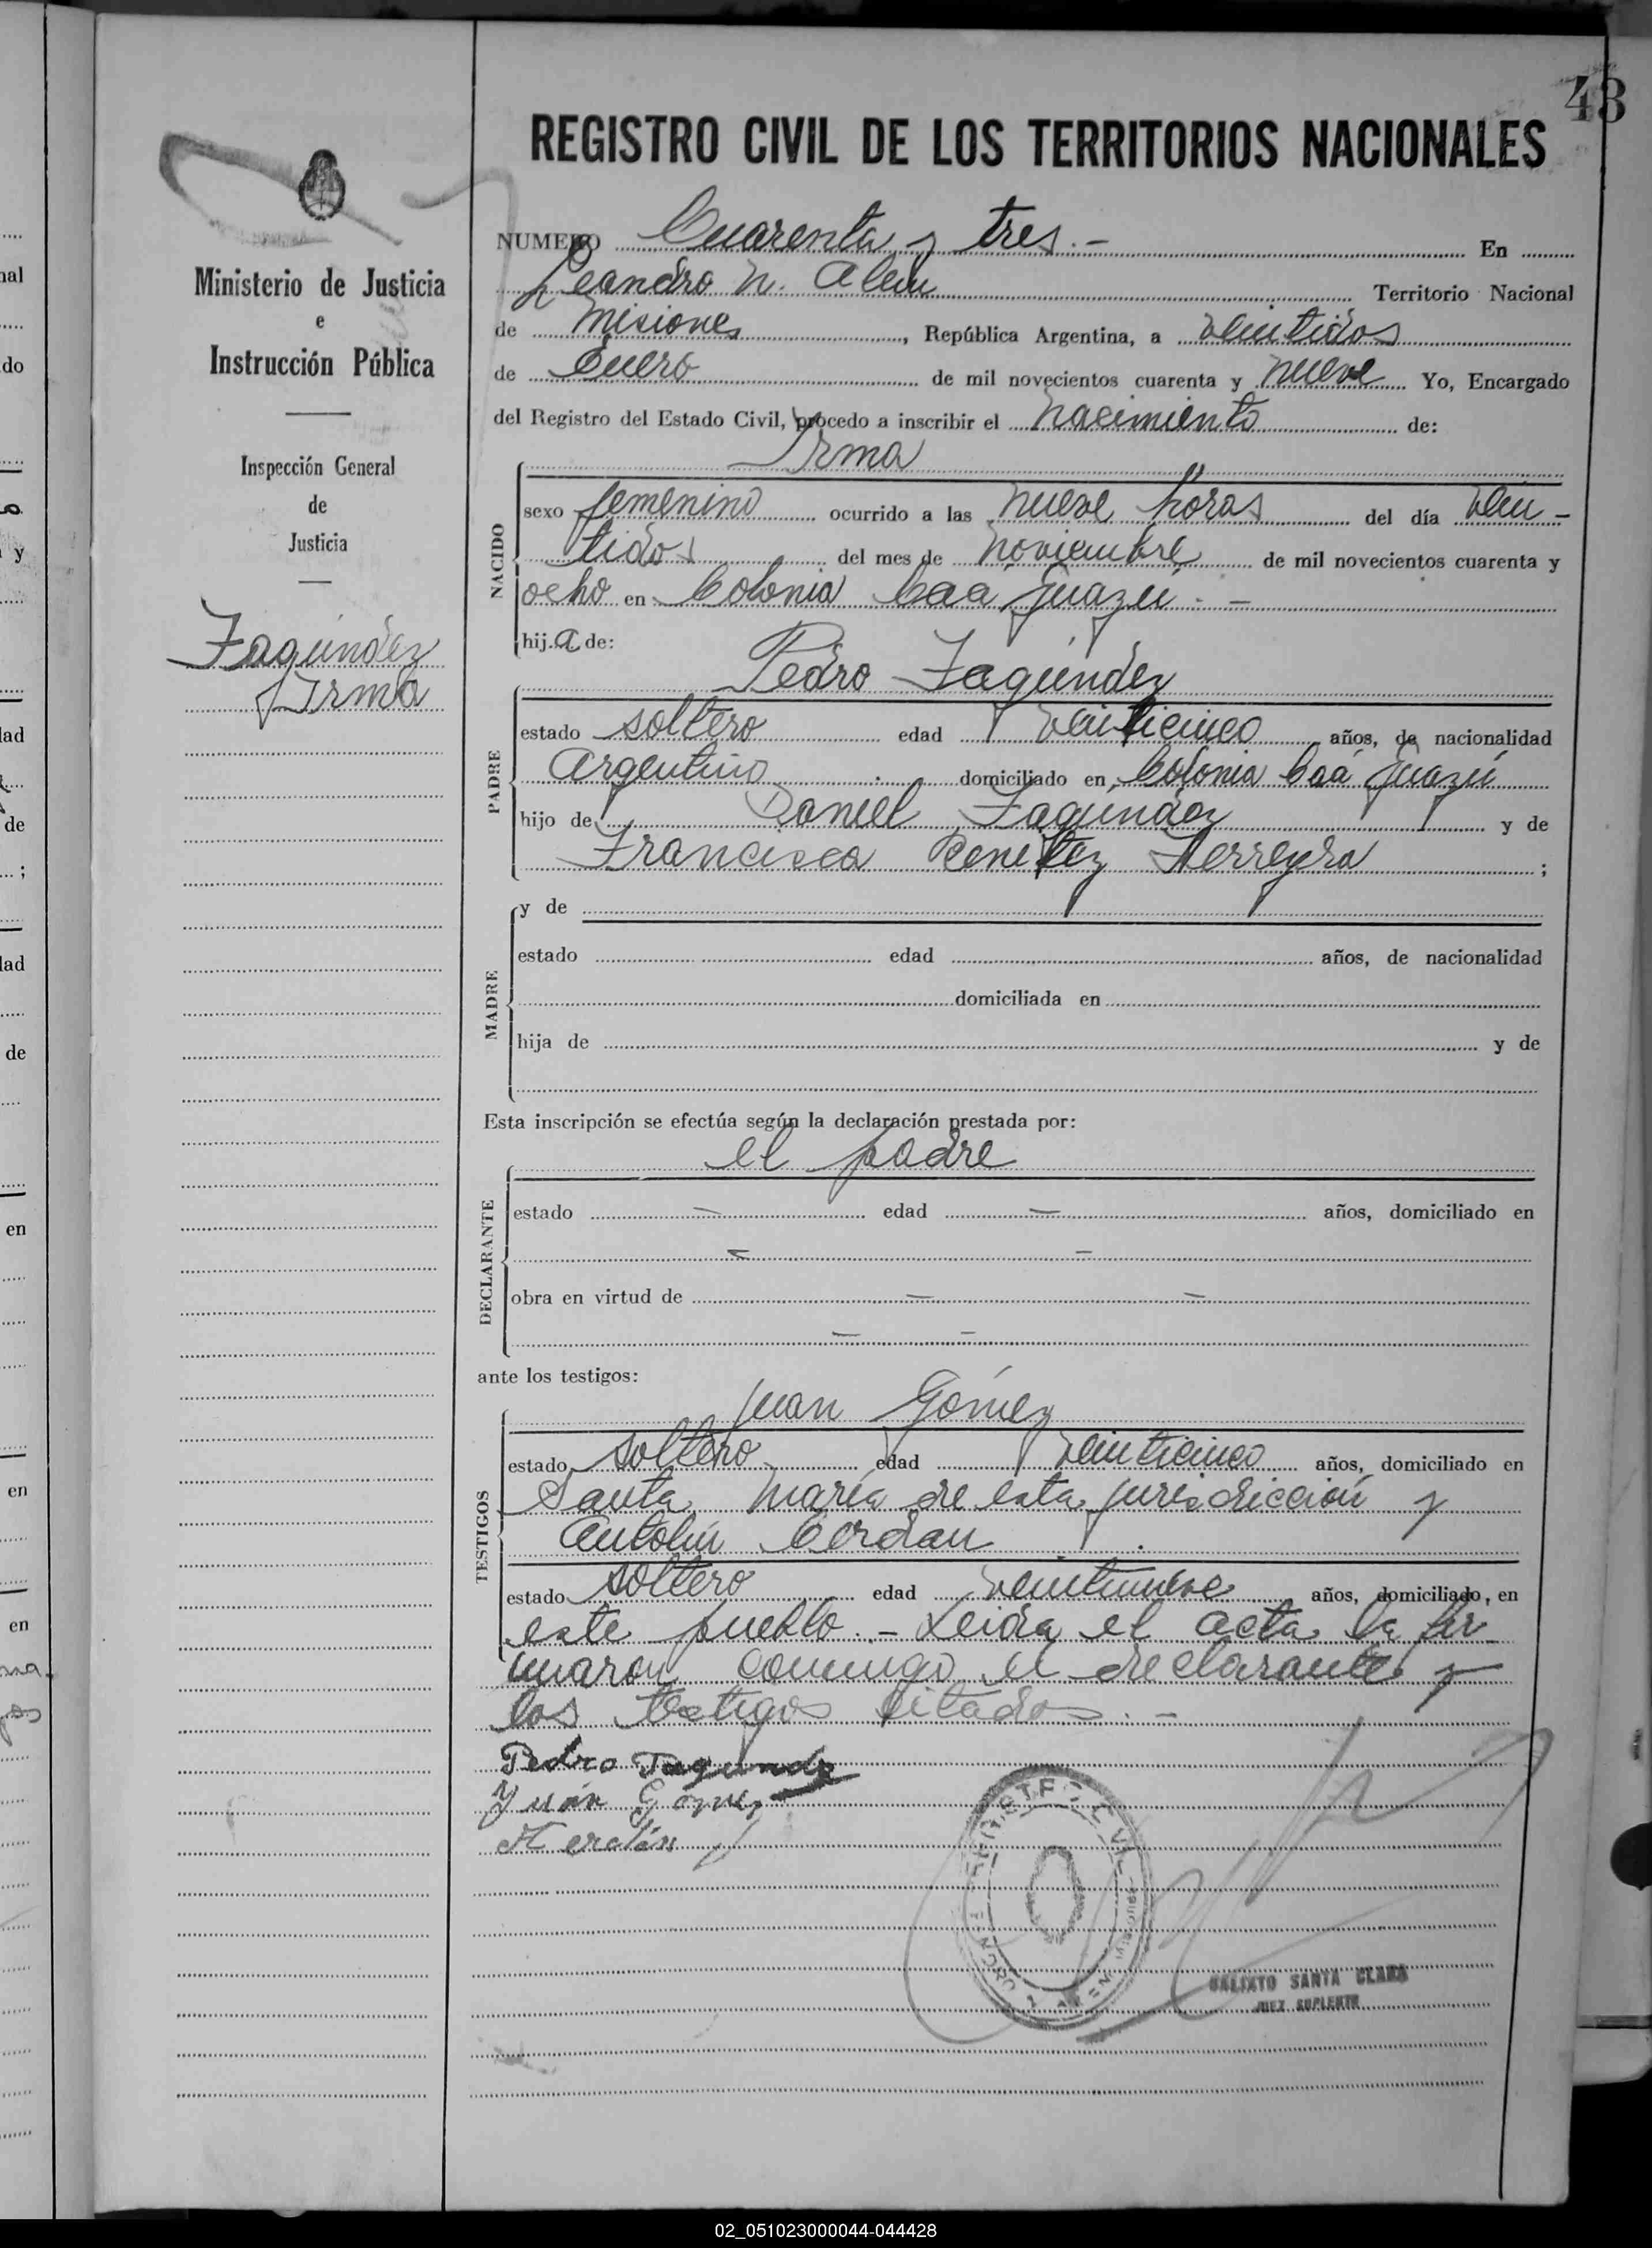 43
REGISTRO CIVIL DE LOS TERRITORIOS NACIONALES
Ministerio de Justicia
e
Instrucción Pública
Inspección General
de
Justicia
Fagúndez
Irma
NUMERO Cuarenta y tres.- En
Leandro N. Alem Territorio Nacional
de Misiones, República Argentina, a veintidos
de Enero de mil novecientos cuarenta y nueve Yo, Encargado
del Registro del Estado Civil, procedo a inscribir el nacimiento de:
Irma
NACIDO
sexo femenino ocurrido a las nueve horas del día vein-
tidos del mes de noviembre de mil novecientos cuarenta y
ocho en Colonia Caá Guazú.-
hija de:
Pedro Fagúndez
PADRE
estado soltero edad veinticinco años, de nacionalidad
Argentino domiciliado en Colonia Caá Guazú
hijo de Daniel Fagúndez y de
Francisca Benitez Ferreyra ;
MADRE
y de
estado edad años, de nacionalidad
domiciliada en
hija de y de
Esta inscripción se efectúa según la declaración prestada por:
el padre
DECLARANTE
estado - edad - años, domiciliado en
- -
obra en virtud de - -
- -
ante los testigos:
Juan Gómez
TESTIGOS
estado soltero edad veinticinco años, domiciliado en
Santa María de esta jurisdicción y
Antolín Cerdan
estado soltero edad veintinueve años, domiciliado en
este pueblo.- Leida el acta la fir-
maron conmigo el declarante y
los testigos citados.-
Pedro Fagundez
Juan Gomez
A Cerdán
REGISTRO CIVIL
LEANDRO N. ALEM
MISIONES
CALIXTO SANTA CLARA
JUEZ SUPLENTE
nal
do
y
lad
de
;
lad
de
en
en
en
02_051023000044-044428